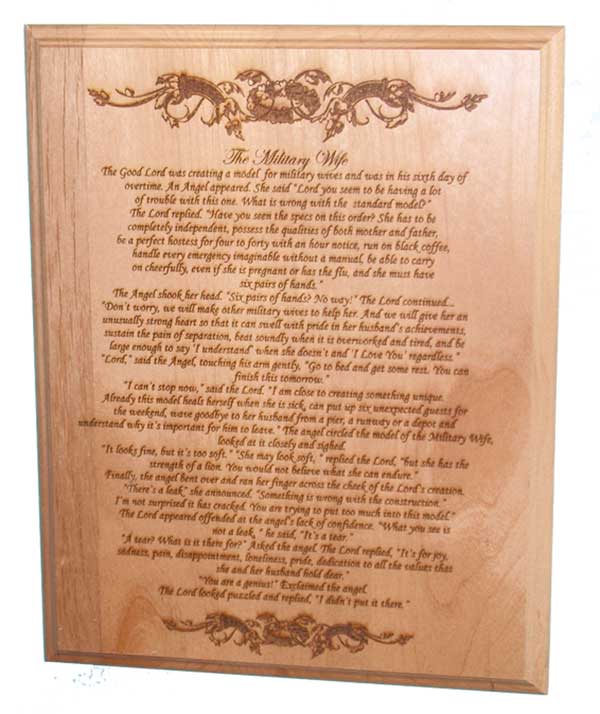 The Military Wife
The Good Lord was creating a model for military wives and was in his sixth day of
overtime. An Angel appeared. She said "Lord you seem to be having a lot
of trouble with this one. What is wrong with the standard model?"
The Lord replied. "Have you seen the specs on this order? She has to be
completely independent, possess the qualities of both mother and father,
be a perfect hostess for four to forty with an hour notice, run on black coffee,
handle every emergency imaginable without a manual, be able to carry
on cheerfully, even if she is pregnant or has the flu, and she must have
six pairs of hands."
The Angel shook her head. "Six pairs of hands? No way!" The Lord continued...
"Don't worry, we will make other military wives to help her. And we will give her an
unusually strong heart so that it can swell with pride in her husband's achievements,
sustain the pain of separation, beat soundly when it is overworked and tired, and be
large enough to say 'I understand' when she doesn't and 'I Love You' regardless."
"Lord," said the Angel, touching his arm gently, "Go to bed and get some rest. You can
finish this tomorrow."
"I can't stop now," said the Lord. "I am close to creating something unique.
Already this model heals herself when she is sick, can put up six unexpected guests for
the weekend, wave goodbye to her husband from a pier, a runway or a depot and
understand why it's important for him to leave." The angel circled the model of the Military Wife,
looked at it closely and sighed.
"It looks fine, but it's too soft." "She may look soft, " replied the Lord, "but she has the
strength of a lion. You would not believe what she can endure."
Finally, the angel bent over and ran her finger across the cheek of the Lord's creation.
"There's a leak," she announced. "Something is wrong with the construction."
I'm not surprised it has cracked. You are trying to put too much into this model."
The Lord appeared offended at the angel's lack of confidence. "What you see is
not a leak, " he said, "It's a tear."
"A tear? What is it there for?" Asked the angel. The Lord replied, "It's for joy,
sadness, pain, disappointment, loneliness, pride, dedication to all the values that
she and her husband hold dear."
"You are a genius!" Exclaimed the angel.
The Lord looked puzzled and replied, "I didn't put it there."